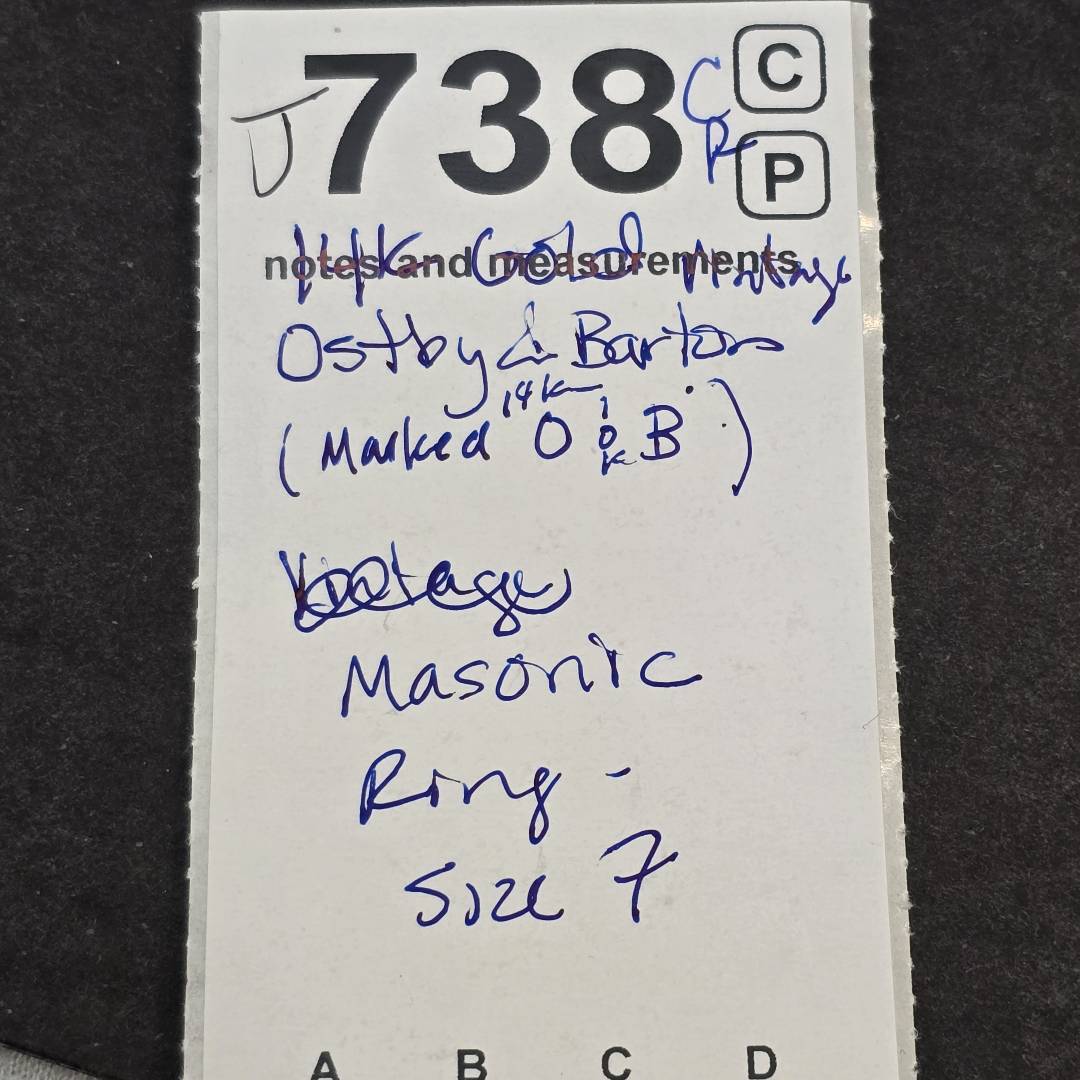 J 738 C C
R P
notes and measurements
14K Gold Vintage
Ostby & Barton
14K
(Marked O 10K B)
Vintage
Masonic
Ring -
Size 7
A B C D